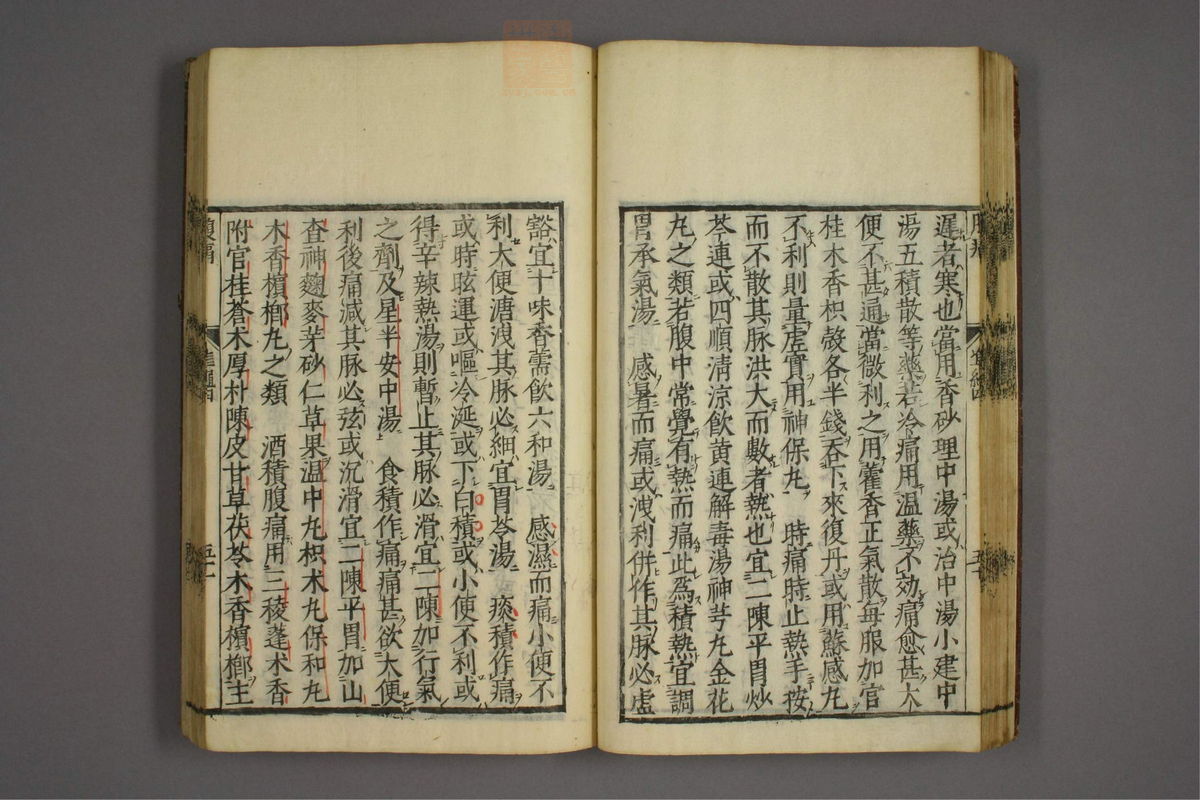 遲者寒也當用香砂理中湯或治中湯小建中
湯五積散等藥若冷痛用溫藥不効痛愈甚大
便不甚通當微利之用藿香正氣散每服加官
桂木香枳殼各半錢吞下來復丹或用蘇感丸
不利則量虛實用神保丸 時痛時止熱手按
而不散其脉洪大而數者熱也宜二陳平胃炒
芩連或四順清涼飲黃連解毒湯神芎丸金花
丸之類若腹中常覺有熱而痛此爲積熱宜調
胃承氣湯 感暑而痛或洩利併作其脉必虛
豁宜十味香薷飲六和湯 感濕而痛小便不
利大便溏洩其脉必細宜胃苓湯 痰積作痛
或時眩運或嘔冷涎或下白積或小便不利或
得辛辣熱湯則暫止其脉必滑宜二陳加行氣
之劑及星半安中湯 食積作痛痛甚欲大便
利後痛減其脉必弦或沉滑宜二陳平胃加山
查神麯麥芽砂仁草果溫中丸枳术丸保和丸
木香檳榔丸之類 酒積腹痛用三稜蓬术香
附官桂蒼术厚朴陳皮甘草茯苓木香檳榔主